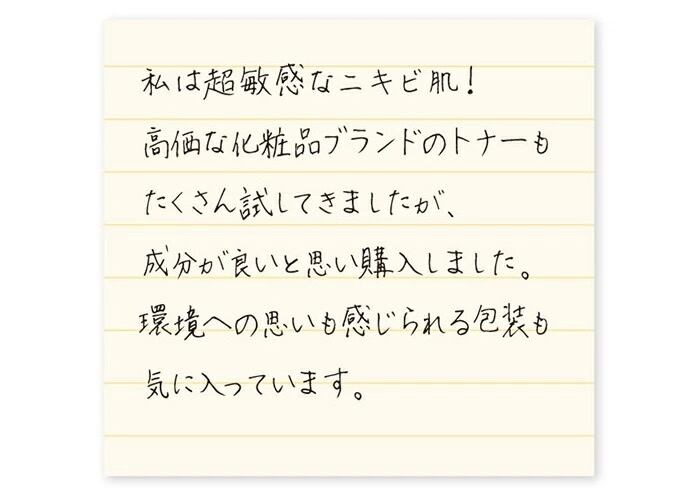 私は超敏感なニキビ肌!
高価な化粧品ブランドのトナーも
たくさん試してきましたが、
成分が良いと思い購入しました。
環境への思いも感じられる包装も
気に入っています。